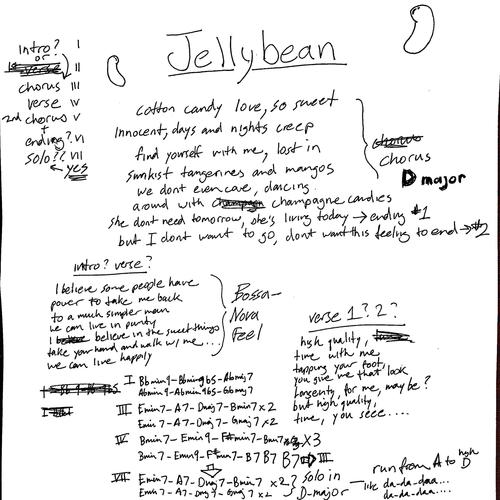 Jellybean
intro? I
or
1st verse II
chorus III
verse IV
2nd chorus V
+
ending? VI
solo?? VII
← yes
cotton candy love, so sweet
Innocent, days and nights creep
find yourself with me, lost in
sunkist tangerines and mangos
we dont even care, dancing
around with champagne candies
She dont need tomorrow, she's living today → ending #1
but I dont want to go, dont want this feeling to end → #2
chorus
chorus
D major
intro? verse?
I believe some people have
power to take me back
to a much simpler man
We can live in purity
I believe in the sweet things
take your hand and walk w/ me...
we can live happily
Bossa-
Nova
Feel
verse 1? 2?
high quality,
time with me,
tapping your foot,
you give me that look
Longevity, for me, maybe?
but high quality,
time, you seee....
I Bbmin9-Bbmin9b5-Abmaj7
Abmin9-Abmin9b5-Gbmaj7
III Emin7-A7-Dmaj7-Bmin7 x2
Emin7-A7-Dmaj7-Gmaj7 x2
IV Bmin7-Emin9-F#min7-Bmin7 x3
Bmin7-Emin9-F#min7-B7 B7 B7 ⇒ III
VII Emin7-A7-Dmaj7-Bmin7 x2
Emin7-A7-Dmaj7-Gmaj7 x2
solo in
D-major
run from A to high D
like da-da-daa...
da-da-daa....